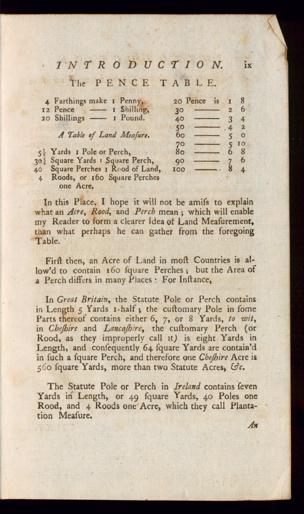 INTRODUCTION. ix
The PENCE TABLE.
4 Farthings make 1 Penny,
12 Pence —— 1 Shilling,
20 Shillings —— 1 Pound.
A Table of Land Meaſure.
5½ Yards 1 Pole or Perch,
30¼ Square Yards 1 Square Perch,
40 Square Perches 1 Rood of Land,
4 Roods, or 160 Square Perches
one Acre.
20 Pence is 1 8
30 —— 2 6
40 —— 3 4
50 —— 4 2
60 —— 5 0
70 —— 5 10
80 —— 6 8
90 —— 7 6
100 —— 8 4
In this Place, I hope it will not be amiſs to explain
what an Acre, Rood, and Perch mean; which will enable
my Reader to form a clearer Idea of Land Meaſurement,
than what perhaps he can gather from the foregoing
Table.
Firſt then, an Acre of Land in moſt Countries is al-
low'd to contain 160 ſquare Perches; but the Area of
a Perch differs in many Places: For Inſtance,
In Great Britain, the Statute Pole or Perch contains
in Length 5 Yards 1-half; the cuſtomary Pole in ſome
Parts thereof contains either 6, 7, or 8 Yards, to wit,
in Cheſhire and Lancaſhire, the cuſtomary Perch (or
Rood, as they improperly call it) is eight Yards in
Length, and conſequently 64 ſquare Yards are contain'd
in ſuch a ſquare Perch, and therefore one Cheſhire Acre is
560 ſquare Yards, more than two Statute Acres, &c.
The Statute Pole or Perch in Ireland contains ſeven
Yards in Length, or 49 ſquare Yards, 40 Poles one
Rood, and 4 Roods one Acre, which they call Planta-
tion Meaſure.
An